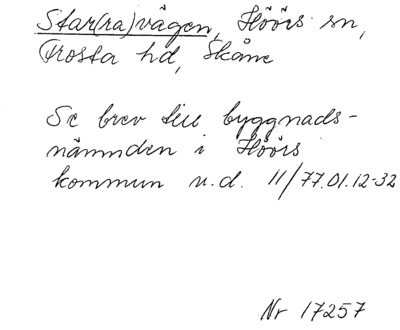 Star(ra)vägen, Höörs sn,
Frosta hd, Skåne
Se brev till byggnads-
nämnden i Höörs
kommun u.d. 11/77.01.12-32
Nr 17257